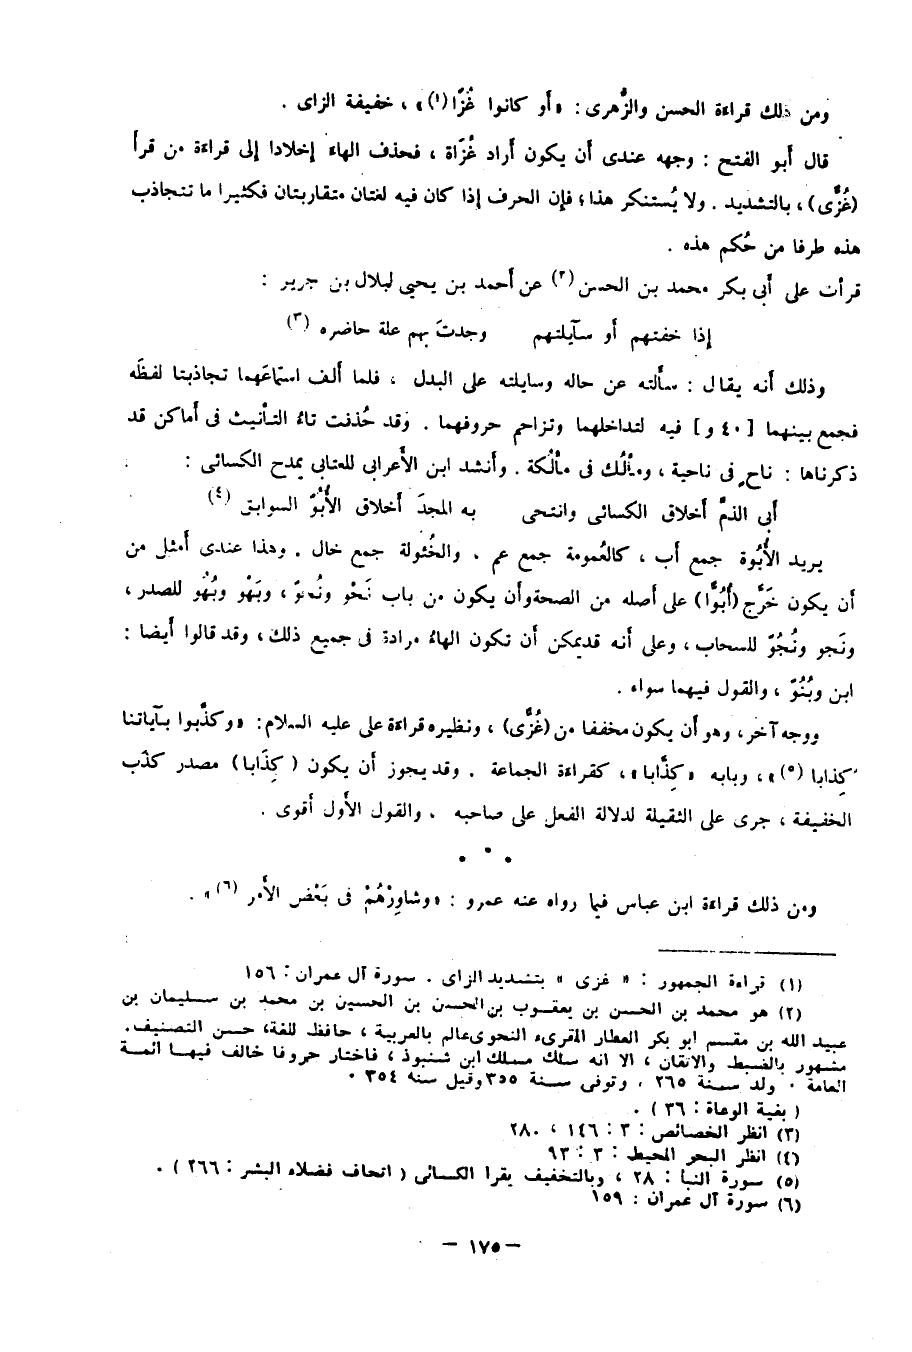 ومن ذلك قراءة الحسن والزُّهرى: «أو كانوا غُزًا(١)» ، خفيفة الزاى .
قال أبو الفتح : وجهه عندى أن يكون أراد غُزَاة ، فحذف الهاء إخلادا إلى قراءة من قرأ
(غُزًّى)، بالتشديد . ولا يُستنكر هذا؛ فإن الحرف إذا كان فيه لغتان متقاربتان فكثيرا ما تتجاذب
هذه طرفا من حُكم هذه .
قرأت على أبى بكر محمد بن الحسن (٢) عن أحمد بن يحيى لبلال بن جرير :
إذا خفتهم أو سآيلتهم وجدتَ بهم علة حاضره (٣)
وذلك أنه يقال : سألته عن حاله وسايلته على البدل ، فلما ألف استماعهما تجاذبتا لفظَه
فجمع بينهما [ ٤٠ و ] فيه لتداخلهما وتزاحم حروفهما . وَقد حُذفت تاءُ التأنيث فى أماكن قد
ذكرناها : ناحٍ فى ناحية ، ومألُك فى مألُكة . وأنشد ابن الأعرابى للعتابى يمدح الكسائى :
أبى الذمَّ أخلاق الكسائى وانتحى به المجدَ أخلاق الأُبُوّ السوابق (٤)
يريد الأُبُوة جمع أب ، كالعُمومة جمع عم . والخُئولة جمع خال . وهذا عندى أمثل من
أن يكون خَرَّج (أُبُوًّا) على أصله من الصحة وأن يكون من باب نَحْو ونُحوّ ، وبَهْو وبُهُو للصدر ،
ونَجو ونُجُوّ للسحاب ، وعلى أنه قد يمكن أن تكون الهاءُ مرادة فى جميع ذلك ، وقد قالوا أيضا :
ابن وبُنُوّ ، والقول فيهما سواء .
ووجه آخر ، وهو أن يكون مخففا من (غُزًّى) ، ونظيره قراءة على عليه السلام: «وكذَّبوا بآياتنا
كِذابا (٥)»، وبابه «كِذَّابا»، كقراءة الجماعة . وقد يجوز أن يكون ( كِذَابا) مصدر كذَب
الخفيفة ، جرى على الثقيلة لدلالة الفعل على صاحبه . والقول الأول أقوى .
• • •
ومن ذلك قراءة ابن عباس فيما رواه عنه عمرو : «وشاوِرْهُمْ فى بَعْض الأمر (٦)» .
(١) قراءة الجمهور : « غزى » بتشديد الزاى . سورة آل عمران : ١٥٦
(٢) هو محمد بن الحسن بن يعقوب بن الحسن بن الحسين بن محمد بن سليمان بن
عبيد الله بن مقسم أبو بكر العطار المقرىء النحوى عالم بالعربية ، حافظ للغة، حسن التصنيف.
مشهور بالضبط والاتقان ، الا انه سلك مسلك ابن شنبوذ ، فاختار حروفا خالف فيها ائمة
العامة . ولد سنة ٢٦٥ ، وتوفى سنة ٣٥٥ وقيل سنه ٣٥٤ .
( بغية الوعاة : ٣٦ ) .
(٣) انظر الخصائص : ٣ : ١٤٦ ، ٢٨٠
(٤) انظر البحر المحيط : ٣ : ٩٣
(٥) سورة النبأ : ٢٨ ، وبالتخفيف يقرا الكسائى ( اتحاف فضلاء البشر : ٢٦٦ ) .
(٦) سورة آل عمران : ١٥٩
– ١٧٥ –